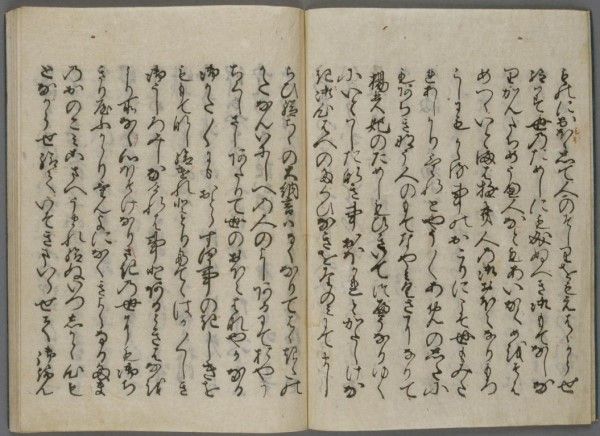 ものにおほして人のそしりをもえはゝからせ
給はす世のためしにも成ぬへき御もてなしな
りかんたちめうへ人なともあいなくめをそは
めつゝいとまはゆき人の御おほえなりもろ
こしにもかゝる事のおこりにこそ世もみたれ
あしかりけれとやう〱あめのしたに
もあちきなう人のもてなやみくさになりて
楊貴妃のためしもひきいてつへうなりゆく
にいとはしたなき事おほかれとかたしけな
き御心はへのたくひなきをたのみにてまし
らひ給ちゝの大納言はなくなりてはゝ北の
かたなんいにしへの人のよしあるにておやう
ちくしさしあたりて世のおほえはなやかなる
御かた〱にもおとらす何事のきしきを
ももてなし給けれととりたてゝはか〱しき
御うしろみしなけれは事とある時は猶
より所なく心ほそけなりさきの世にも御ち
きりやふかゝりけんよになくきよらなる玉
のおのこみこさへうまれ給ぬいつしかと心も
となからせ給ていそきまいらせて御らん